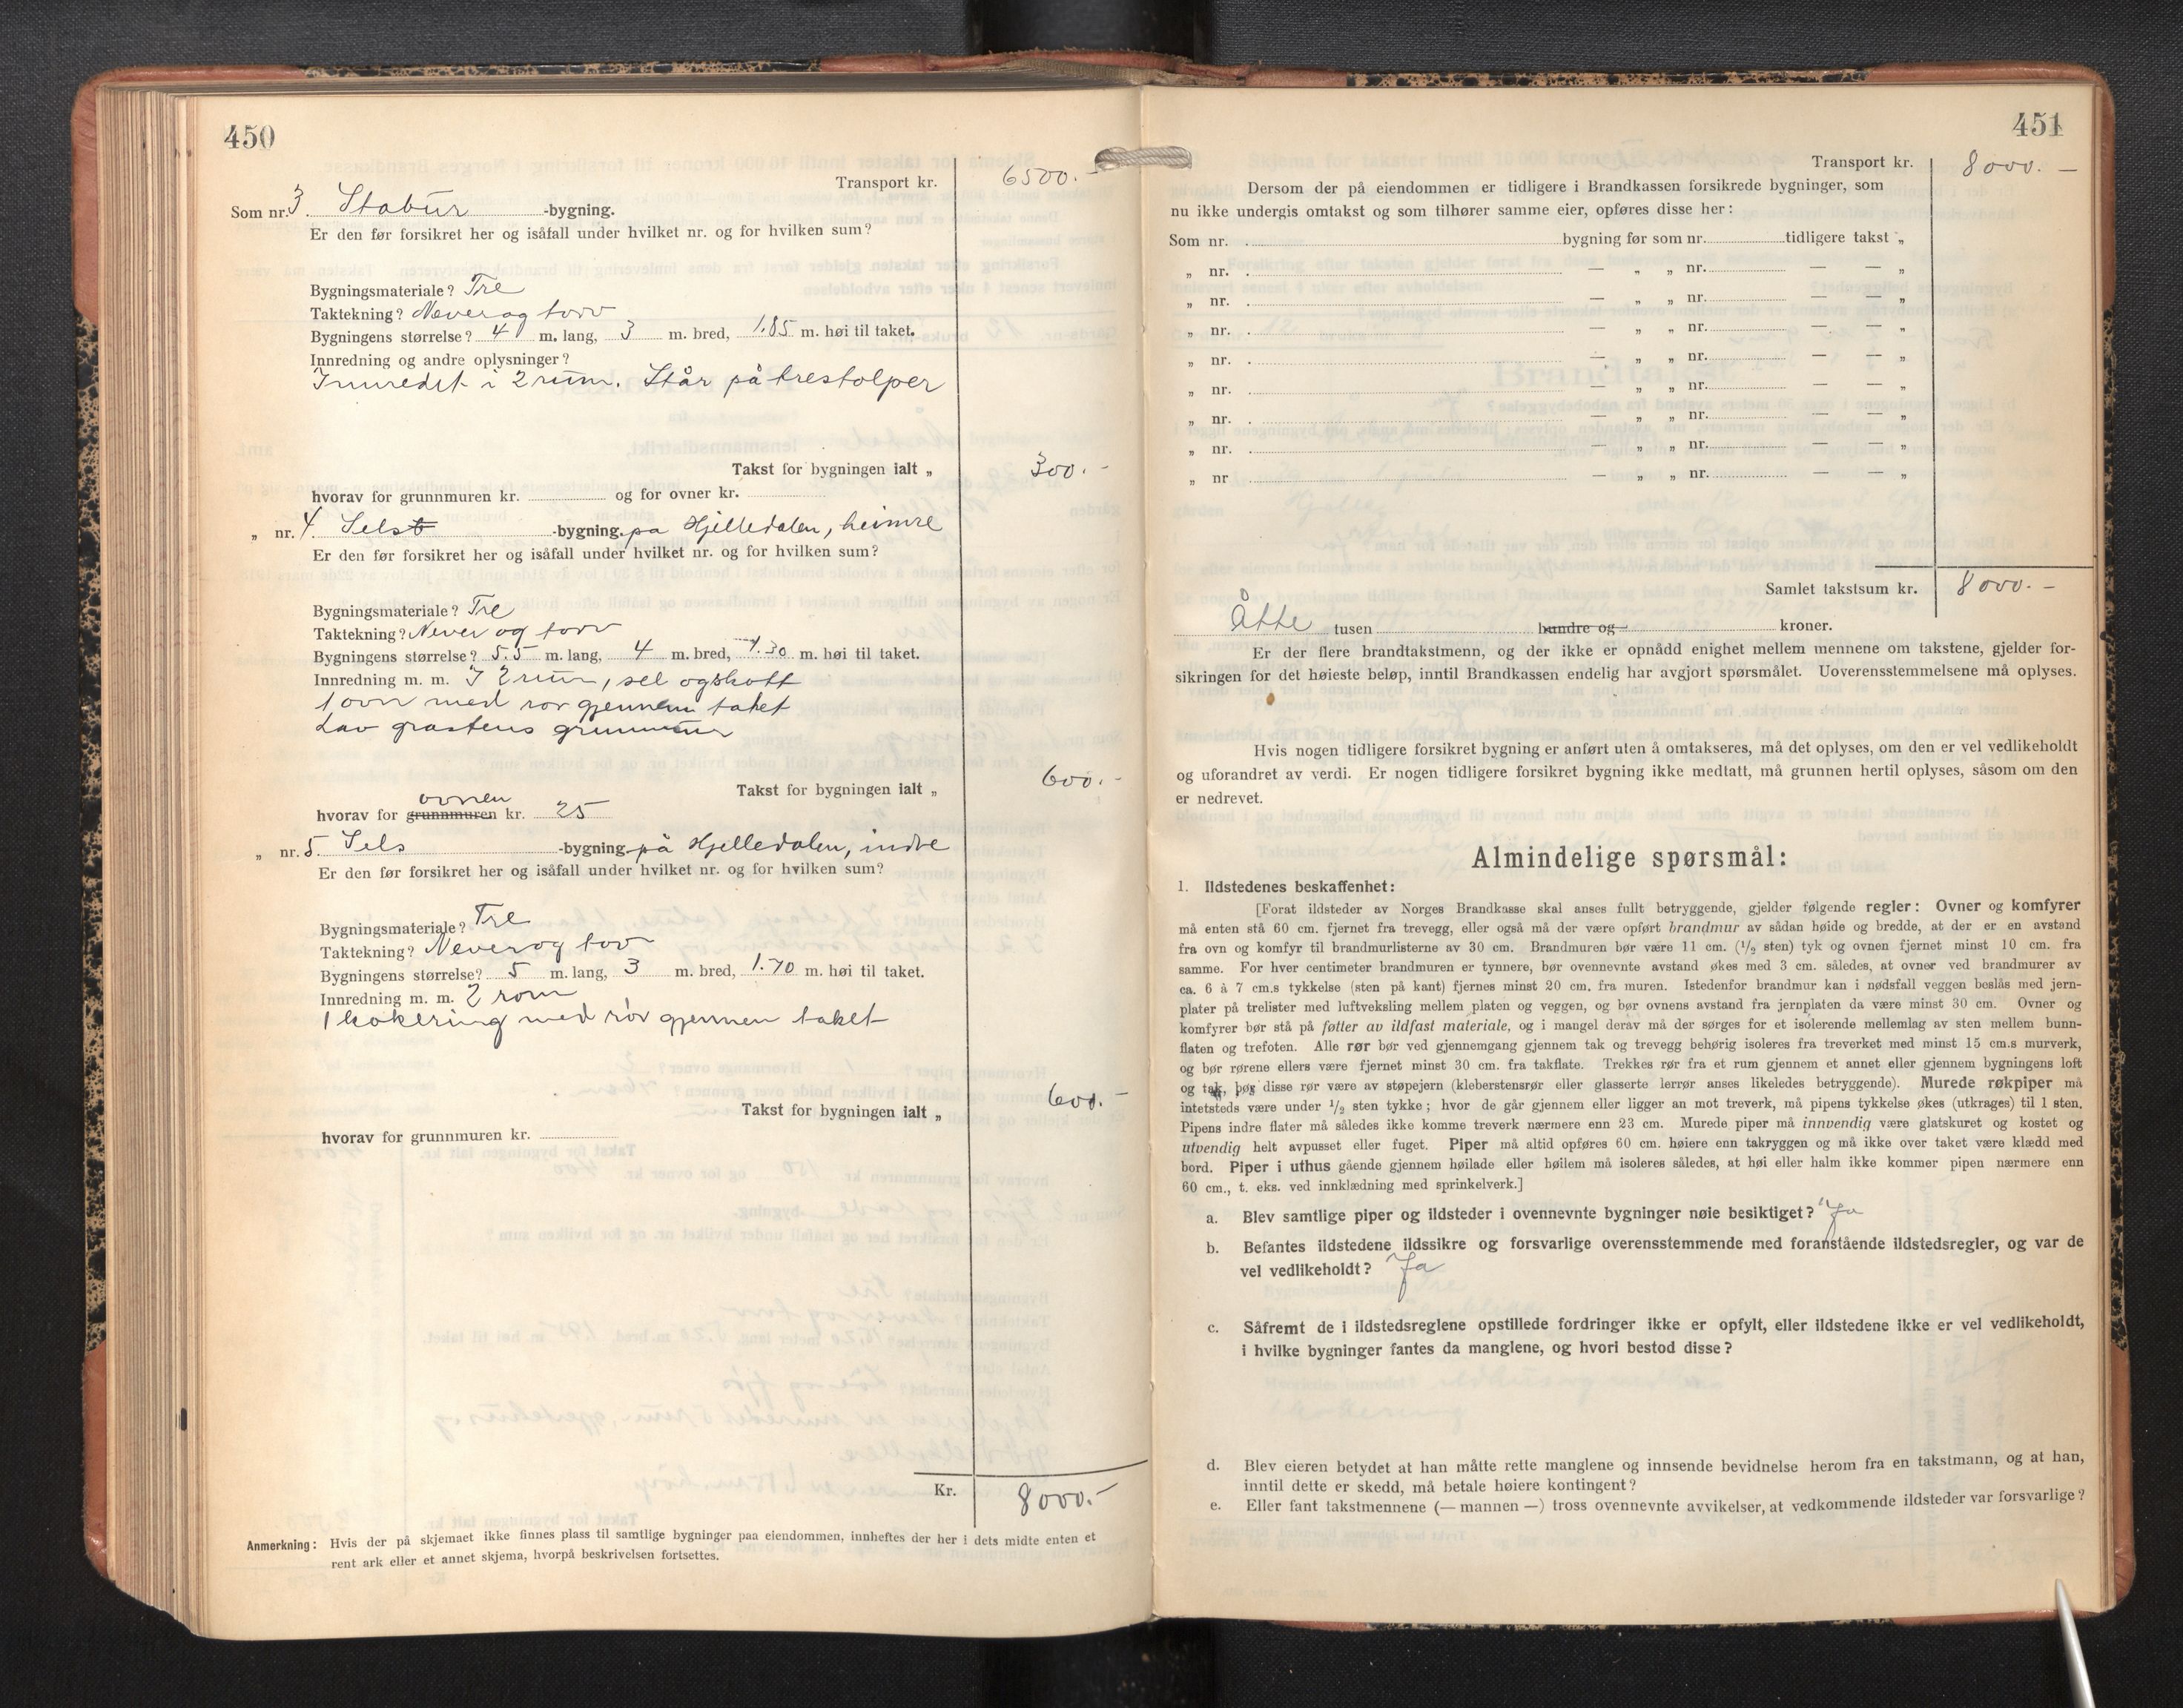 450
Transport kr. 6500.-
Som nr. 3. Stabur -bygning.
Er den før forsikret her og isåfall under hvilket nr. og for hvilken sum?
Bygningsmateriale? Tre
Taktekning? Never og torv
Bygningens størrelse? 4 m. lang, 3 m. bred, 1.85 m. høi til taket.
Innredning og andre oplysninger?
Innredet i 2 rum. Står på trestolper
Takst for bygningen ialt „ 300.-
hvorav for grunnmuren kr. og for ovner kr.
„ nr. 4. Sels -bygning. på Hjelledalen, heimre
Er den før forsikret her og isåfall under hvilket nr. og for hvilken sum?
Bygningsmateriale? Tre
Taktekning? Never og torv
Bygningens størrelse? 5.5 m. lang, 4 m. bred, 1.30 m. høi til taket.
Innredning m. m. I 2 rum, sel og skott
1 ovn med rør gjennem taket
Lav grastens grunnmur
Takst for bygningen ialt „ 600.-
ovnen
hvorav for grunnmuren kr. 25
„ nr. 5. Sels -bygning på Hjelledalen, indre
Er den før forsikret her og isåfall under hvilket nr. og for hvilken sum?
Bygningsmateriale? Tre
Taktekning? Never og torv
Bygningens størrelse? 5 m. lang, 3 m. bred, 1.70 m. høi til taket.
Innredning m. m. 2 rom
1 kokering med rør gjennem taket
Takst for bygningen ialt „ 600.-
hvorav for grunnmuren kr.
Kr. 8000.-
Anmerkning: Hvis der på skjemaet ikke finnes plass til samtlige bygninger paa eiendommen, innheftes der her i dets midte enten et
rent ark eller et annet skjema, hvorpå beskrivelsen fortsettes.
451
Transport kr. 8000.-
Dersom der på eiendommen er tidligere i Brandkassen forsikrede bygninger, som
nu ikke undergis omtakst og som tilhører samme eier, opføres disse her:
Som nr. bygning før som nr. tidligere takst „
„ nr. — „ „ nr. — — „
„ nr. — „ „ nr. — — „
„ nr. — „ „ nr. — — „
„ nr. — „ „ nr. — — „
„ nr. — „ „ nr. — — „
„ nr. — „ „ nr. — — „
„ nr. — „ „ nr. — — „
„ nr — „ „ nr. — — „
Samlet takstsum kr. 8000.-
Åtte tusen hundre og kroner.
Er der flere brandtakstmenn, og der ikke er opnådd enighet mellem mennene om takstene, gjelder for-
sikringen for det høieste beløp, inntil Brandkassen endelig har avgjort spørsmålet. Uoverensstemmelsene må oplyses.
Hvis nogen tidligere forsikret bygning er anført uten å omtakseres, må det oplyses, om den er vel vedlikeholdt
og uforandret av verdi. Er nogen tidligere forsikret bygning ikke medtatt, må grunnen hertil oplyses, såsom om den
er nedrevet.
Almindelige spørsmål:
1. Ildstedenes beskaffenhet:
[Forat ildsteder av Norges Brandkasse skal anses fullt betryggende, gjelder følgende regler: Ovner og komfyrer
må enten stå 60 cm. fjernet fra trevegg, eller også må der være opført brandmur av sådan høide og bredde, at der er en avstand
fra ovn og komfyr til brandmurlisterne av 30 cm. Brandmuren bør være 11 cm. (1/2 sten) tyk og ovnen fjernet minst 10 cm. fra
samme. For hver centimeter brandmuren er tynnere, bør ovennevnte avstand økes med 3 cm. således, at ovner ved brandmurer av
ca. 6 à 7 cm.s tykkelse (sten på kant) fjernes minst 20 cm. fra muren. Istedenfor brandmur kan i nødsfall veggen beslås med jern-
plater på trelister med luftveksling mellem platen og veggen, og bør ovnens avstand fra jernplaten da være minst 30 cm. Ovner og
komfyrer bør stå på føtter av ildfast materiale, og i mangel derav må der sørges for et isolerende mellemlag av sten mellem bunn-
flaten og trefoten. Alle rør bør ved gjennemgang gjennem tak og trevegg behørig isoleres fra treverket med minst 15 cm.s murverk,
og bør rørene ellers være fjernet minst 30 cm. fra takflate. Trekkes rør fra et rum gjennem et annet eller gjennem bygningens loft
og tak, bør disse rør være av støpejern (kleberstensrør eller glasserte lerrør anses likeledes betryggende). Murede røkpiper må
intetsteds være under 1/2 sten tykke; hvor de går gjennem eller ligger an mot treverk, må pipens tykkelse økes (utkrages) til 1 sten.
Pipens indre flater må således ikke komme treverk nærmere enn 23 cm. Murede piper må innvendig være glatskuret og kostet og
utvendig helt avpusset eller fuget. Piper må altid opføres 60 cm. høiere enn takryggen og må ikke over taket være klædd med
bord. Piper i uthus gående gjennem høilade eller høilem må isoleres således, at høi eller halm ikke kommer pipen nærmere enn
60 cm., t. eks. ved innklædning med sprinkelverk.]
a. Blev samtlige piper og ildsteder i ovennevnte bygninger nøie besiktiget? Ja
b. Befantes ildstedene ildssikre og forsvarlige overensstemmende med foranstående ildstedsregler, og var de
vel vedlikeholdt? Ja
c. Såfremt de i ildstedsreglene opstillede fordringer ikke er opfylt, eller ildstedene ikke er vel vedlikeholdt,
i hvilke bygninger fantes da manglene, og hvori bestod disse?
d. Blev eieren betydet at han måtte rette manglene og innsende bevidnelse herom fra en takstmann, og at han,
inntil dette er skedd, må betale høiere kontingent?
e. Eller fant takstmennene (— mannen —) tross ovennevnte avvikelser, at vedkommende ildsteder var forsvarlige?